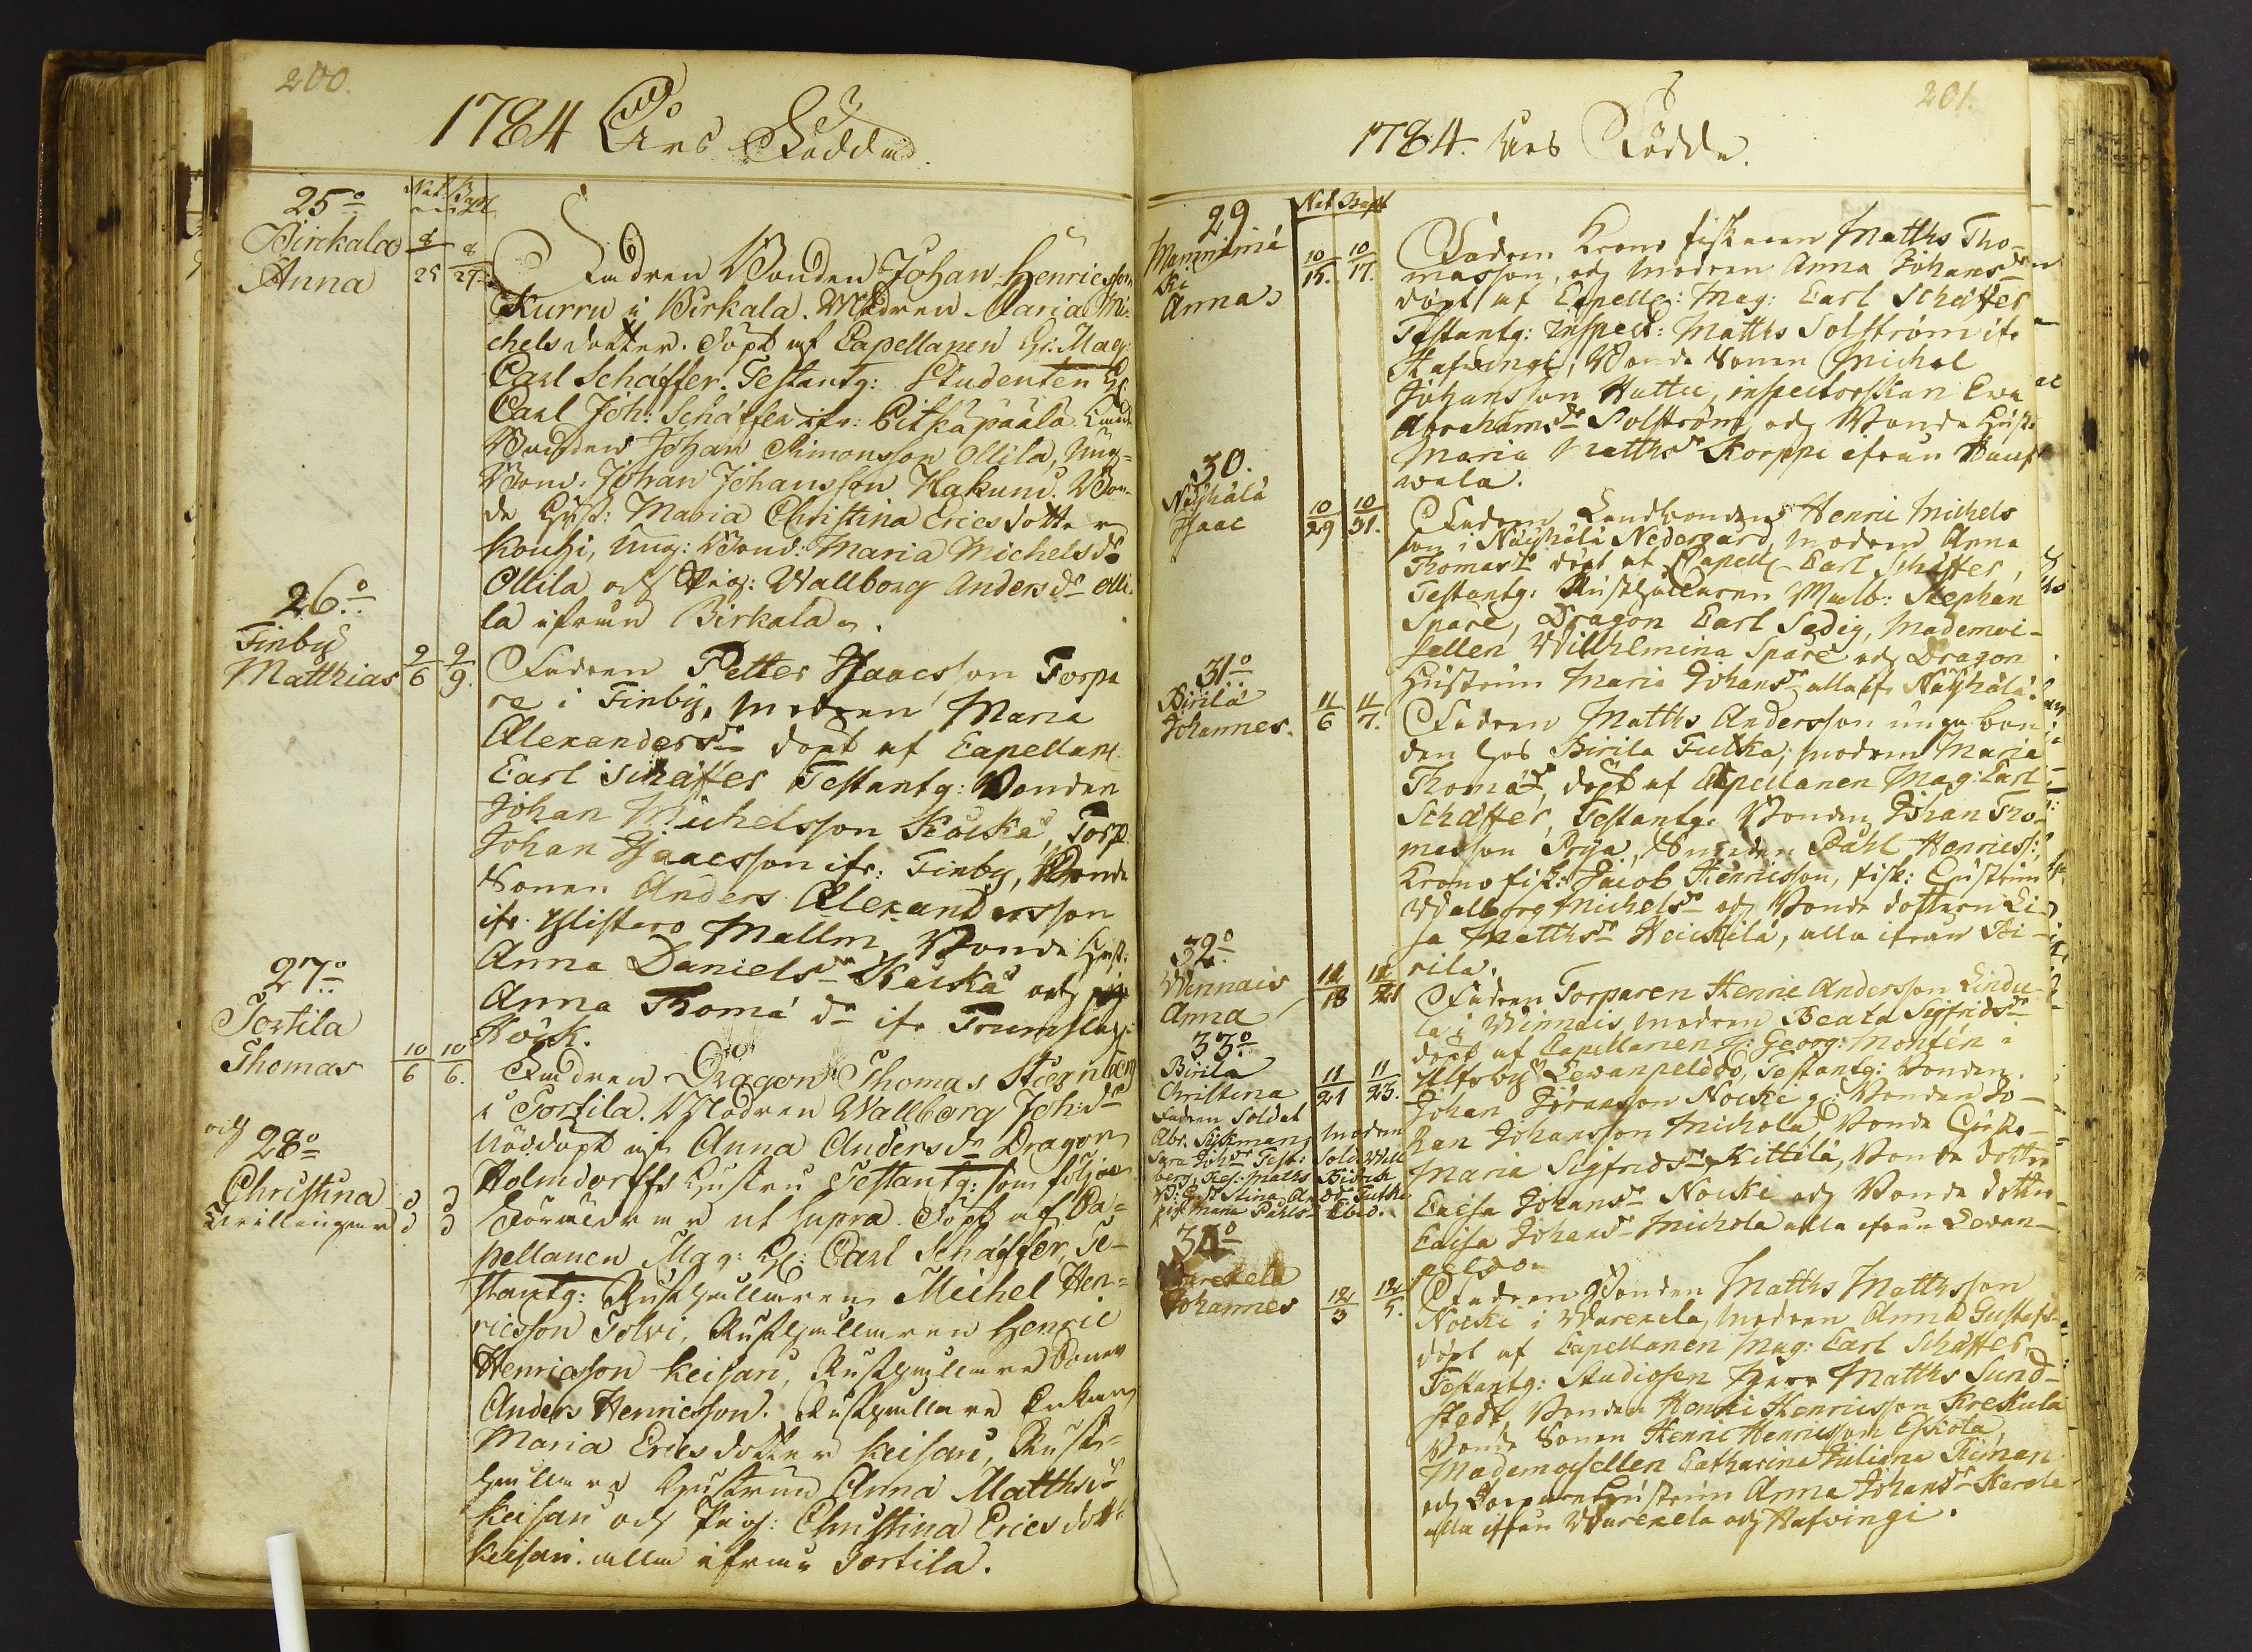 200.
1784 Års Födde.
Nat. Bapt.
25o
Birkala
Anna
8/25 8/27.
Fadren Bonden Johan Henricsson
Kurru i Birkala. Modren Maria Mi-
chelsdotter. döpt af Capellanen Hr: Mag:
Carl Schäffer. Testantg: Studenten Hr:
Carl Joh: Schäffer ifr: Pitkäpaala
Bonden Johan Simonsson Ollila, Ung-
Bond: Johan Johansson Hakuni. Bon-
de Hust: Maria Christina Ericsdotter
Kouhi, Ung: Bond: Maria Michelsdr
Ollila och Pig: Wallborg Andersdr Olli-
la ifrån Birkala.
26o
Finby
Matthias
9/6 9/9.
Fadren Petter Isaacsson Torpa
re i Finby, modren Maria
Alexandersdr döpt af Capellan:
Carl Schäffer Testantg: Bonden
Johan Michelsson Kaika, Torp:
Johan Isaacsson ifr: Finby, Bonde
Sonen Anders Alexandersson
ifr. Mellm, Bonde Hust:
Anna Danielsdr Kaika och
Anna Thomädr ifr Trumslag:
Höök.
27o
Tortila
Thomas
10/6 10/6.
Fadren Dragon Thomas
i Tortila. Modren Wallborg Joh:dr
Nöddöpt af Anna Andersdr Dragon
Holmdorffs Hustru Testantg: som följer
och
28o
Christina
Twillingar
d d
d d
Föräldrar ut supra. döpt af Ca-
pellanen Mag: Hr: Carl Schäffer, Te-
stantg: Rusthållaren Michel Hen-
ricsson Tolvi, Rusthållaren Henric
Henricsson Keisari, Rusthållare Sonen
Anders Henricsson. Rusthållare Enkan
Maria Ericsdotter Keisari, Rust-
hållare Hustrun Anna Matthsdr
Keisari och Pig: Christina Ericsdottr
Keisari. alla ifrån Tortila.
201.
1784. Års Födde.
Nat Bapt
29
Anna
10/15. 10/17.
Fadren Krono fiskaren Matths Tho-
masson, och modren Anna Johansdr
döpt af Capell: Mag: Carl Schäffer
Testantg: Inspect: Matths Solström ifr
Hafvingi, Bonde Sonen Michel
Johansson Huttu, inspectorskan Eva
Abrahamsdr Solström, och Bonde Hust:
Maria Matthsdr Korppi ifrån
wala.
30.
Näyhälä
Isaac
10/29 10/31.
Fadren Landbonden Henric Michels
son i Näyhälä Nedergård, modren Anna
Thomasdr döpt af Capell Carl Schäffer,
Testantg. Rusthållaren Stephan
Spare, Dragon Carl Sedig, Mademoi-
sellen Wilhelmina Spare och Dragon
Hustrun Maria Johansdr alla ifr Näyhälä.
31o
Birila
Johannes.
11/6 11/7.
Fadren Matths Andersson unga bon
den hos Birila Tulka, modren Maria
Thomädr, döpt af Capellanen Mag: Carl
Schäffer, Testantg. Bonden Johan Tho-
masson Prya, Smeden Påhl Henricss:,
Krono fisk: Jacob Henricsson, fisk: Hustrun
Walborg Michelsdr och Bonde dottern Li-
sa Matthsdr Heickilä, alla ifrån Bi-
rila.
32o
Winnais
Anna
11/18 11/21
Fadren Torparen Henric Andersson Lindu-
la i Winnais, modren Beata Sigfridsdr
döpt af Capellanen Hr: Georg: Montén i
Ulfsby Lewanpeldo, Testantg: Bonden
Johan Göransson Nocki g: Bonden Jo-
han Johansson Michola Bonde Hust:
Maria Sigfridsdr Kittilä, Bonde dotter
Caisa Johansdr Nocki och Bonde dotter
Caisa Johansdr Michola alla ifrån Levan-
peldo.
33o
Birila
Christina
11/21 11/23.
Fadren Soldat
Abr. Sijkman, modren
Sara Joh:dr Test: Sold: Well
34o
Warekela
Johannes
12/3 12/5.
Fadren Bonden Matths Matthsson
Nocki i Warekela, modren Anna Gustafs-
döpt af Capellanen Mag: Carl Schäffer,
Testantg: Studiosen Herr Matths Sund-
stedt, Bonden Henric Henricsson Krekula
Bonde Sonen Henric Henricsson Eskola,
Mademoisellen Catharina Juliana Riman
och Torpare Hustrun Anna Johansdr Karola
alla ifrån Warekela och Hafvingi.